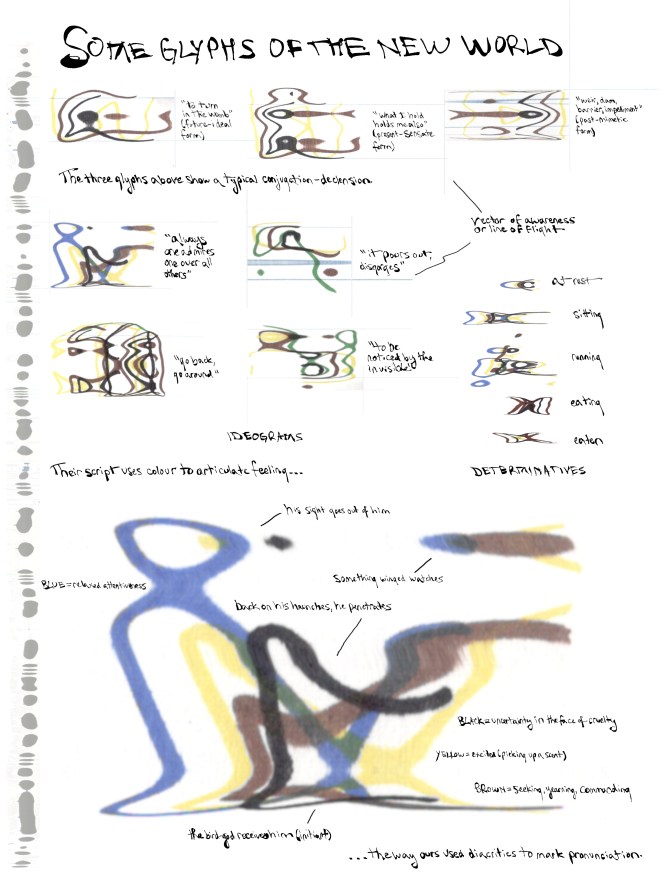 SOME GLYPHS OF THE NEW WORLD
"to turn
in the womb"
(future-ideal
form)
"what I hold
holds me also"
(present-sensate
form)
"weir, dam,
barrier, impediment"
(past-mimetic
form)
The three glyphs above show a typical conjugation-declension.
vector of awareness
or line of flight
"always
one admires
one over all
others"
"it pours out,
disgorges"
at rest
sitting
running
eating
eaten
"go back,
go around"
"to be
noticed by the
invisible"
IDEOGRAMS
DETERMINATIVES
Their script uses colour to articulate feeling...
his sight goes out of him
Something winged watches
BLUE = relaxed attentiveness
back on his haunches, he penetrates
BLACK = uncertainty in the face of cruelty
YELLOW = excited (picking up a scent)
BROWN = seeking, yearning, commanding
the bird-god receives him (initiant)
...the way ours used diacritics to mark pronunciation.